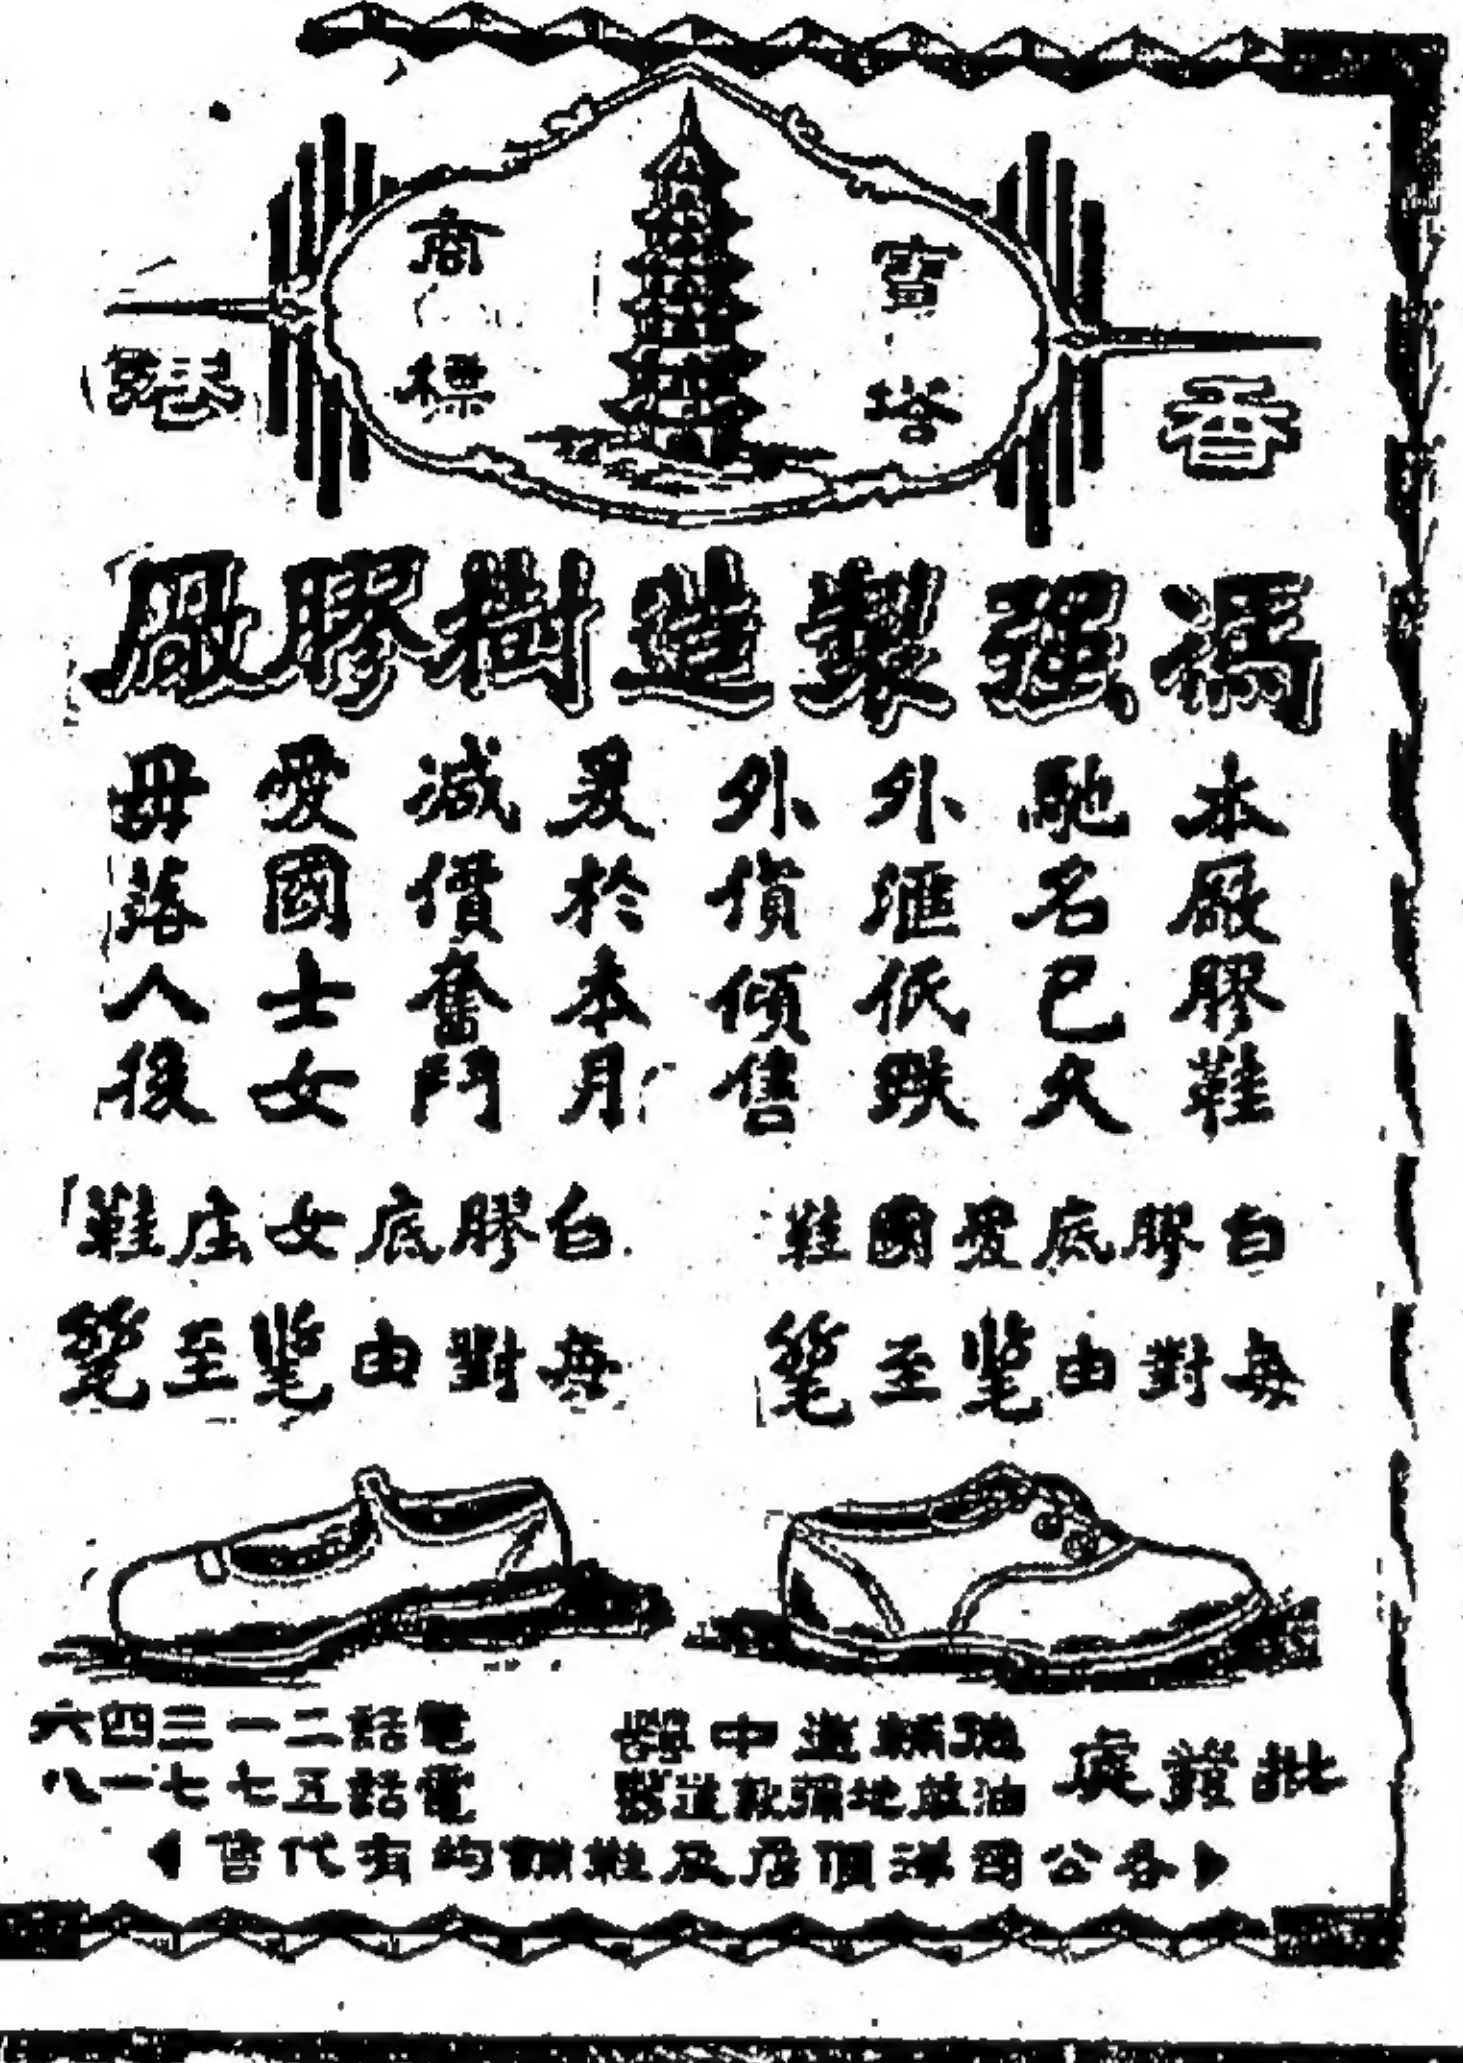 香港
寶塔
商標
馮强製造樹膠廠
本廠膠鞋
馳名已久
外匯低跌
外貨傾售
爰於本月
減價奮鬥
愛國士女
毋落人後
白膠底愛國鞋
每對由至
白膠底女庄鞋
每對由至
批發處
德輔道中
油蔴地彌敦道
電話二一三四六
電話五七七一八
各公司洋貨店及鞋舖均有代售